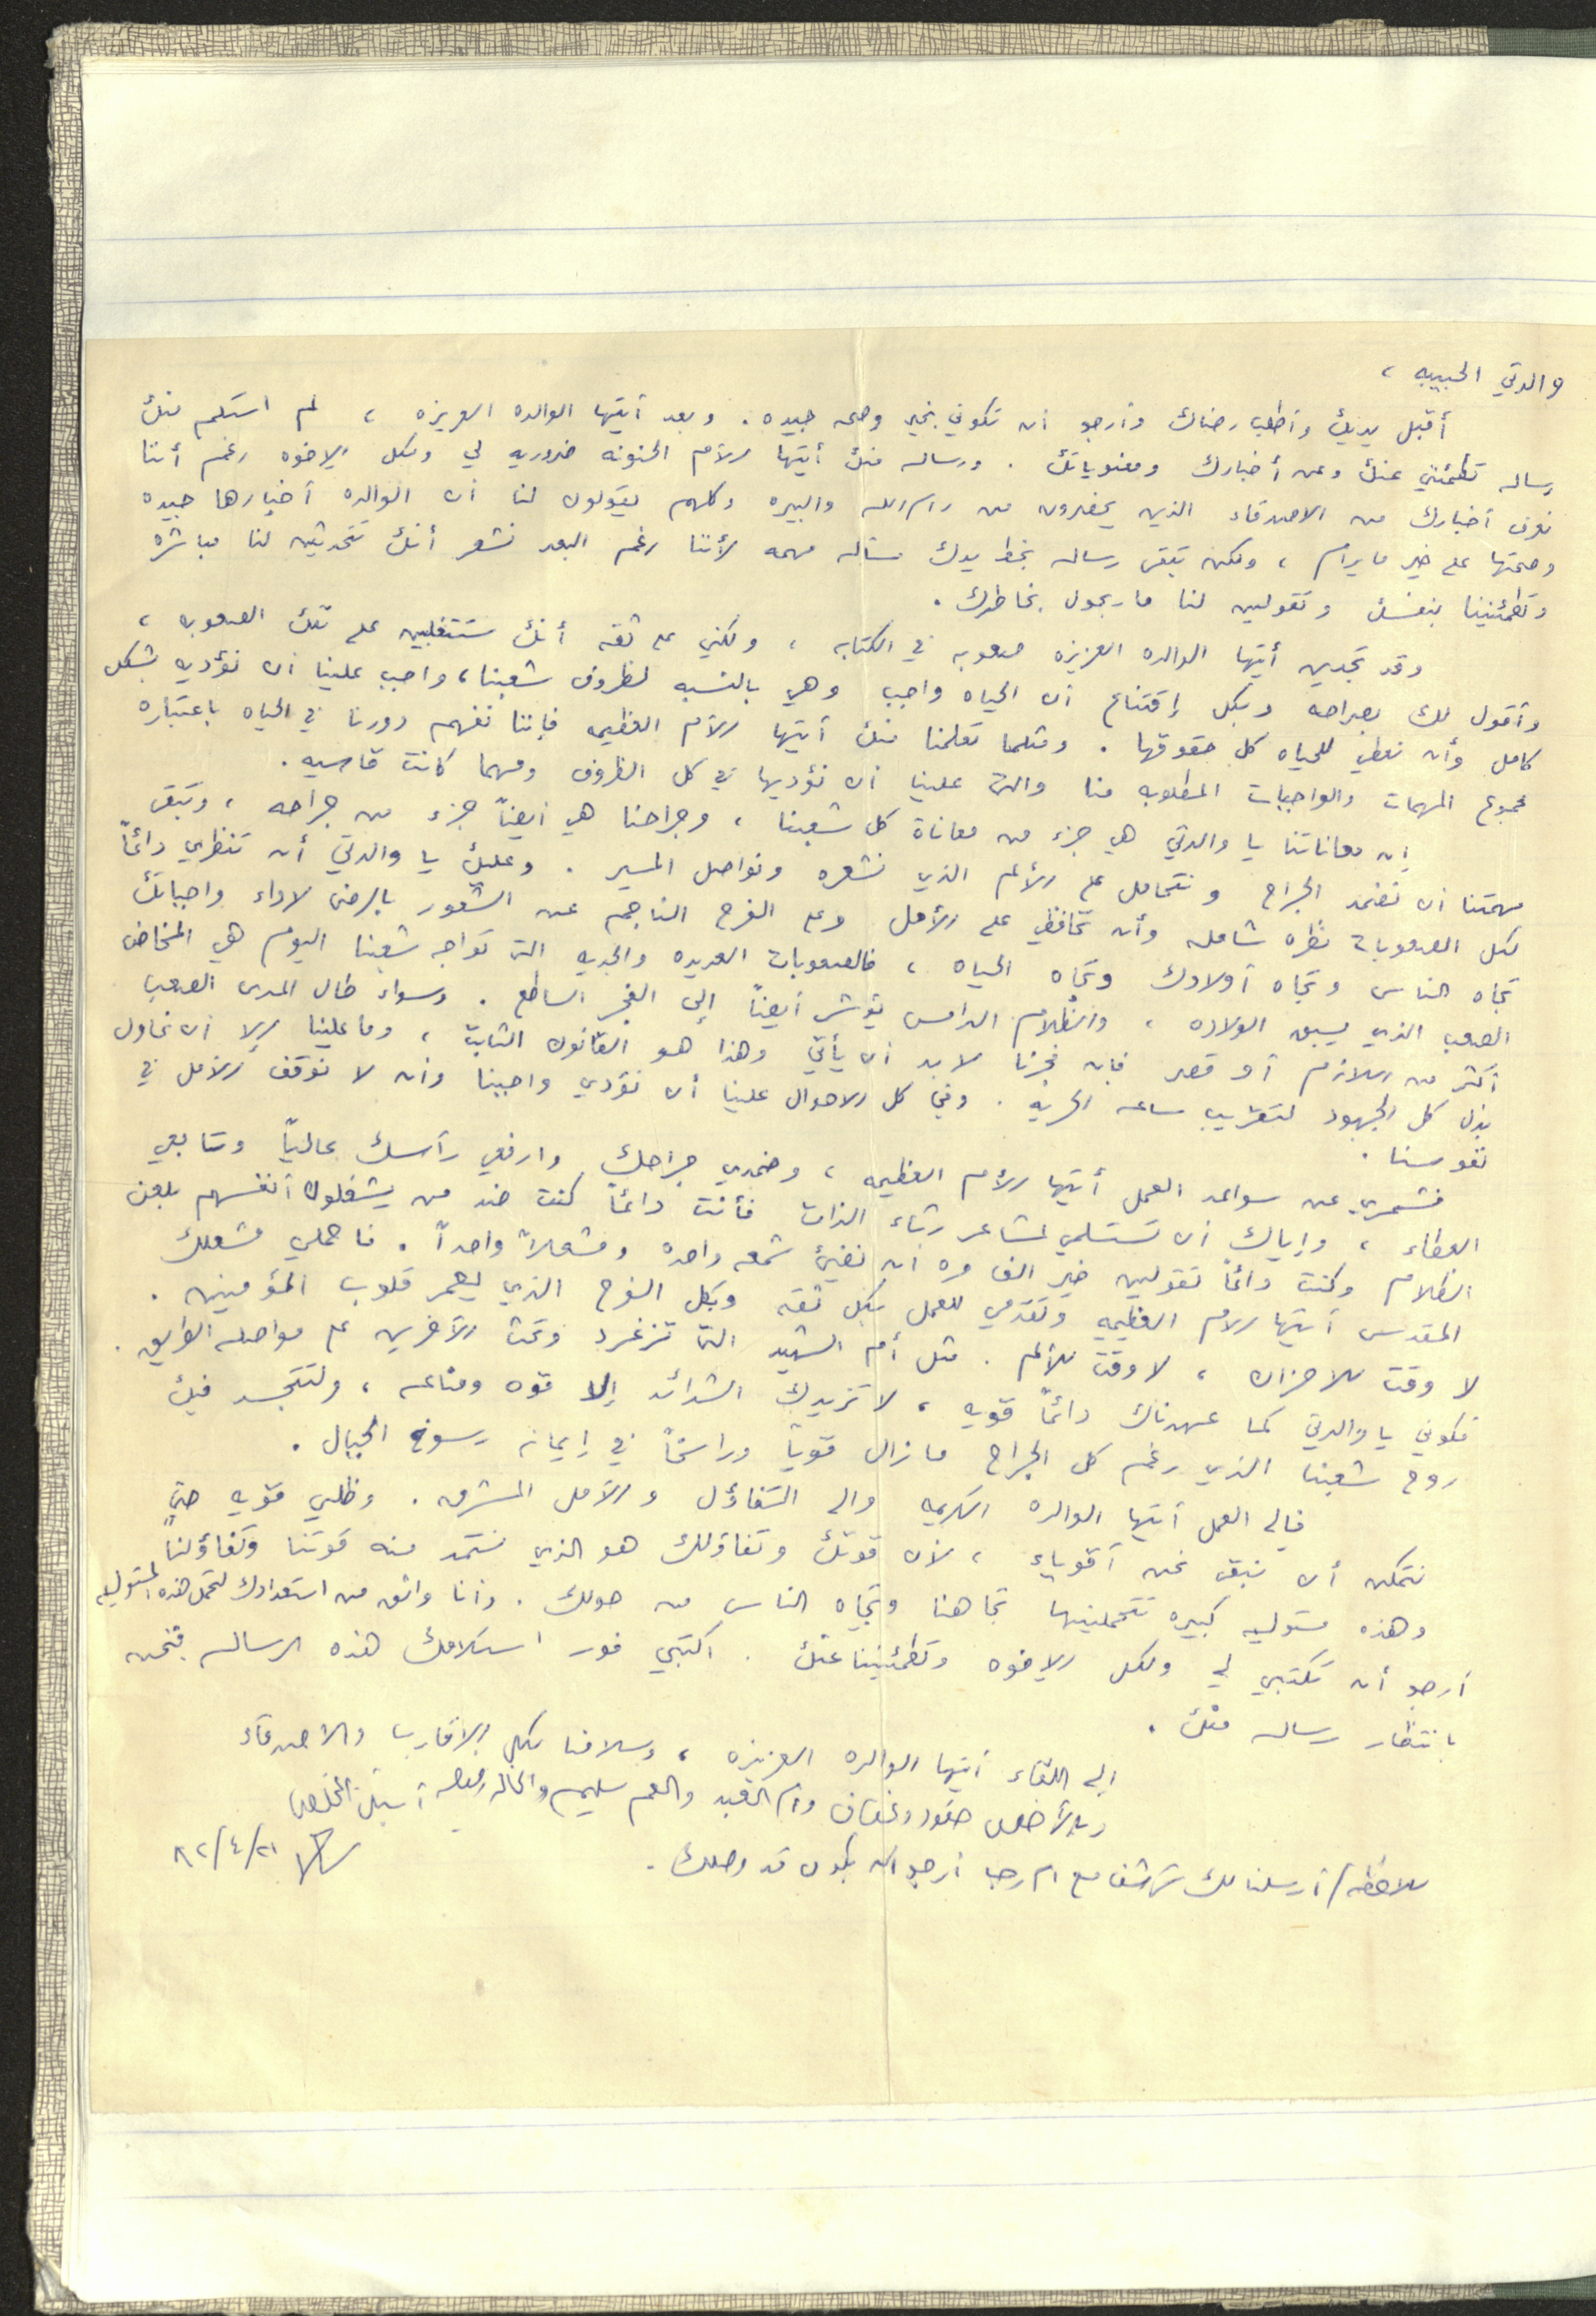 والدتي الحبيبه ،
أقبل يديك وأطلب رضاك وأرجو ان تكوني بخير وصحه جيده . وبعد أيتها الوالده العزيزه ، لم استلم منك
رساله تطمئنني عنك وعن أخبارك ومعنوياتك . ورساله منك أيتها الأم الحنونه ضروريه لي ولكل الاخوه رغم أننا
نعرف أخبارك من الاصدقاء الذين يحضرون من رام الله والبيره وكلهم يقولون لنا ان الوالده أخبارها جيده
وصحتها على خير ما يرام ، ولكن تبقى رساله بخط يدك مسأله مهمه لأننا رغم البعد نشعر أنك تتحدثين لنا مباشره
وتطمئنينا بنفسك وتقولين لنا ما يجول بخاطرك .
وقد تجدين أيتها الوالده العزيزه صعوبه في الكتابه ، ولكني على ثقه أنك ستتغلبين على تلك الصعوبه ،
وأقول لك بصراحه وبكل إقتناع ان الحياه واجب وهي بالنسبه لظروف شعبنا ، واجب علينا ان نؤديه بشكل
كامل وأن نعطي للحياه كل حقوقها . ومثلما تعلمنا منك أيتها الأم العظيمه فإننا نفهم دورنا في الحياه باعتباره
مجموع المهمات والواجبات المطلوبه منا والتي علينا ان نؤديها في كل الظروف ومهما كانت قاسيه .
إن معاناتنا يا والدتي هي جزء من معاناة كل شعبنا ، وجراحنا هي أيضاً جزء من جراحه ، وتبقى
مهمتنا ان نضمد الجراح ونتحامل على الألم الذي نشعره ونواصل المسير . وعليك يا والدتي أن تنظري دائماً
لكل الصعوبات نظره شامله وأن تحافظي على الأمل وعلى الفرح الناجم عن الشعور بالرضى لاداء واجباتك
تجاه الناس وتجاه أولادك وتجاه الحياه ، فالصعوبات العديده والجديه التي تواجه شعبنا اليوم هي المخاض
الصعب الذي يسبق الولاده ، والظلام الدامس يؤشر أيضاً إلى الفجر الساطع . وسواء طال المدى الصعب
أكثر من اللازم أو قصر فإن فجرنا لا بد ان يأتي وهذا هو القانون الثابت ، وما علينا إلا ان نحاول
بذل كل الجهود لتقريب ساعه الحريه . وفي كل الاحوال علينا أن نؤدي واجبنا وأن لا نوقف الأمل في
نفوسنا .
فشمري عن سواعد العمل أيتها الأم العظيمه ، وضمدي جراحك وارفعي رأسك عالياً وتابعي
العطاء ، وإياك ان تستسلمي لمشاعر رثاء الذات فأنت دائماً كنت ضد من يشغلون أنفسهم بلعن
الظلام وكنت دائماً تقولين خير الف مره ان نضيئ شمعه واحده ومشعلاً واحداً . فاحملي مشعلك
المقدس أيتها الام العظيمه وتقدمي للعمل بكل ثقه وبكل الفرح الذي يعمر قلوب المؤمنين .
لا وقت للاحزان ، لا وقت للألم . مثل أم الشهيد التي تزغرد وتحث الآخرين على مواصله الطريق .
فكوني يا والدتي كما عهدناك دائماً قويه ، لا تزيدك الشدائد إلا قوه ومناعه ، ولتتجسد فيك
روح شعبنا الذي رغم كل الجراح ما زال قوياً وراسخاً في إيمانه رسوخ الجبال .
فالى العمل أيتها الوالده الكريمه والى التفاؤل والأمل المشرق . وظلي قويه حتى
نتمكن أن نبقى نحن أقوياء ، لأن قوتك وتفاؤلك هو الذي نستمد منه قوتنا وتفاؤلنا
وهذه مسئوليه كبيره تتحملينها تجاهنا وتجاه الناس من حولك . وأنا واثق من استعدادك لتحمل هذه المسئوليه
أرجو أن تكتبي لي ولكل الاخوه وتطمئنينا عنك . اكتبي فور استلامك هذه الرساله فنحن
بانتظار رساله منك .
الى اللقاء أيتها الوالده العزيزه ، وسلامنا لكل الاقارب والاصدقاء
وبالأخص وعفاف وام العبد والعم سليم والخاله إبنك المخلص
٨٢/٤/٢١
ملاحظه / أرسلنا لك مع ام رجا أرجو ان يكون قد وصلك .